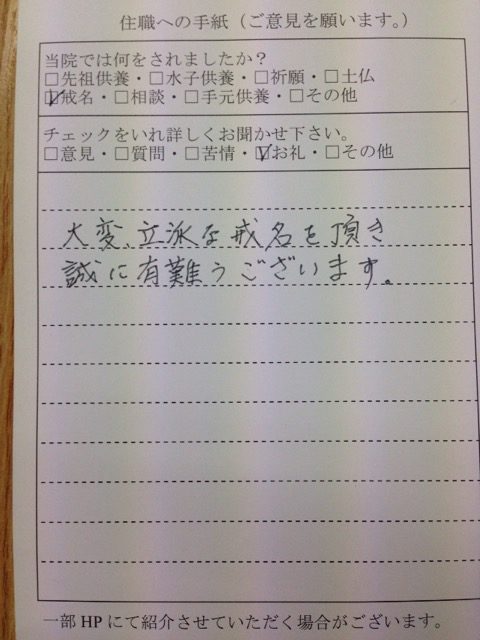 住職への手紙（ご意見を願います。）
当院では何をされましたか？
□先祖供養・□水子供養・□祈願・□土仏
☑戒名・□相談・□手元供養・□その他
チェックをいれ詳しくお聞かせ下さい。
□意見・□質問・□苦情・☑お礼・□その他
大変、立派な戒名を頂き
誠に有難うございます。
一部HPにて紹介させていただく場合がございます。